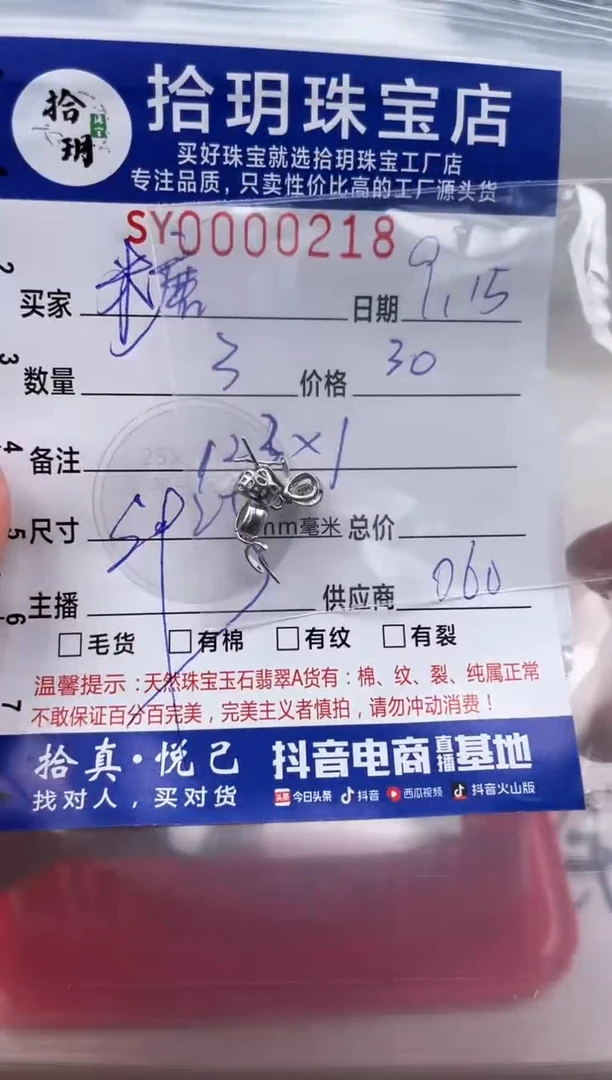 拾玥
拾玥珠宝店
买好珠宝就选拾玥珠宝工厂店
专注品质，只卖性价比高的工厂源头货
SY0000218
买家 米蘑 日期 9.15
数量 3 价格 30
备注 123×1
尺寸 mm毫米 总价
主播 供应商 060
□毛货 □有棉 □有纹 □有裂
温馨提示：天然珠宝玉石翡翠A货有：棉、纹、裂、纯属正常
不敢保证百分百完美，完美主义者慎拍，请勿冲动消费！
拾真·悦己 抖音电商直播基地
找对人，买对货 头条 今日头条 抖音 西瓜视频 抖音火山版
2
3
4
5
6
7